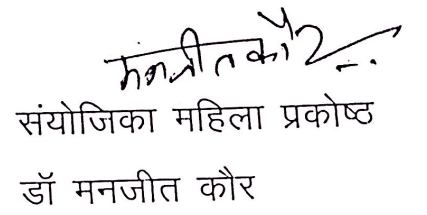 मनजीत कौर
संयोजिका महिला प्रकोष्ठ
डॉ मनजीत कौर